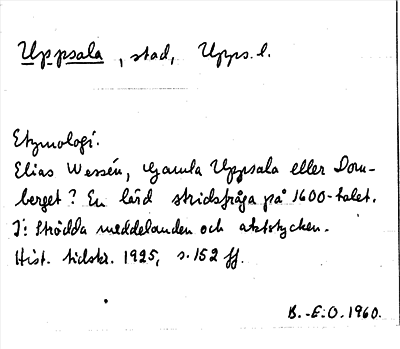 Uppsala, stad, Upps. l.
Etymologi.
Elias Wessén, Gamla Uppsala eller Dom-
berget? En lärd stridsfråga på 1600-talet.
I: Strödda meddelanden och aktstycken.
Hist. tidskr. 1925, s. 152 ff.
B.-E.O. 1960.